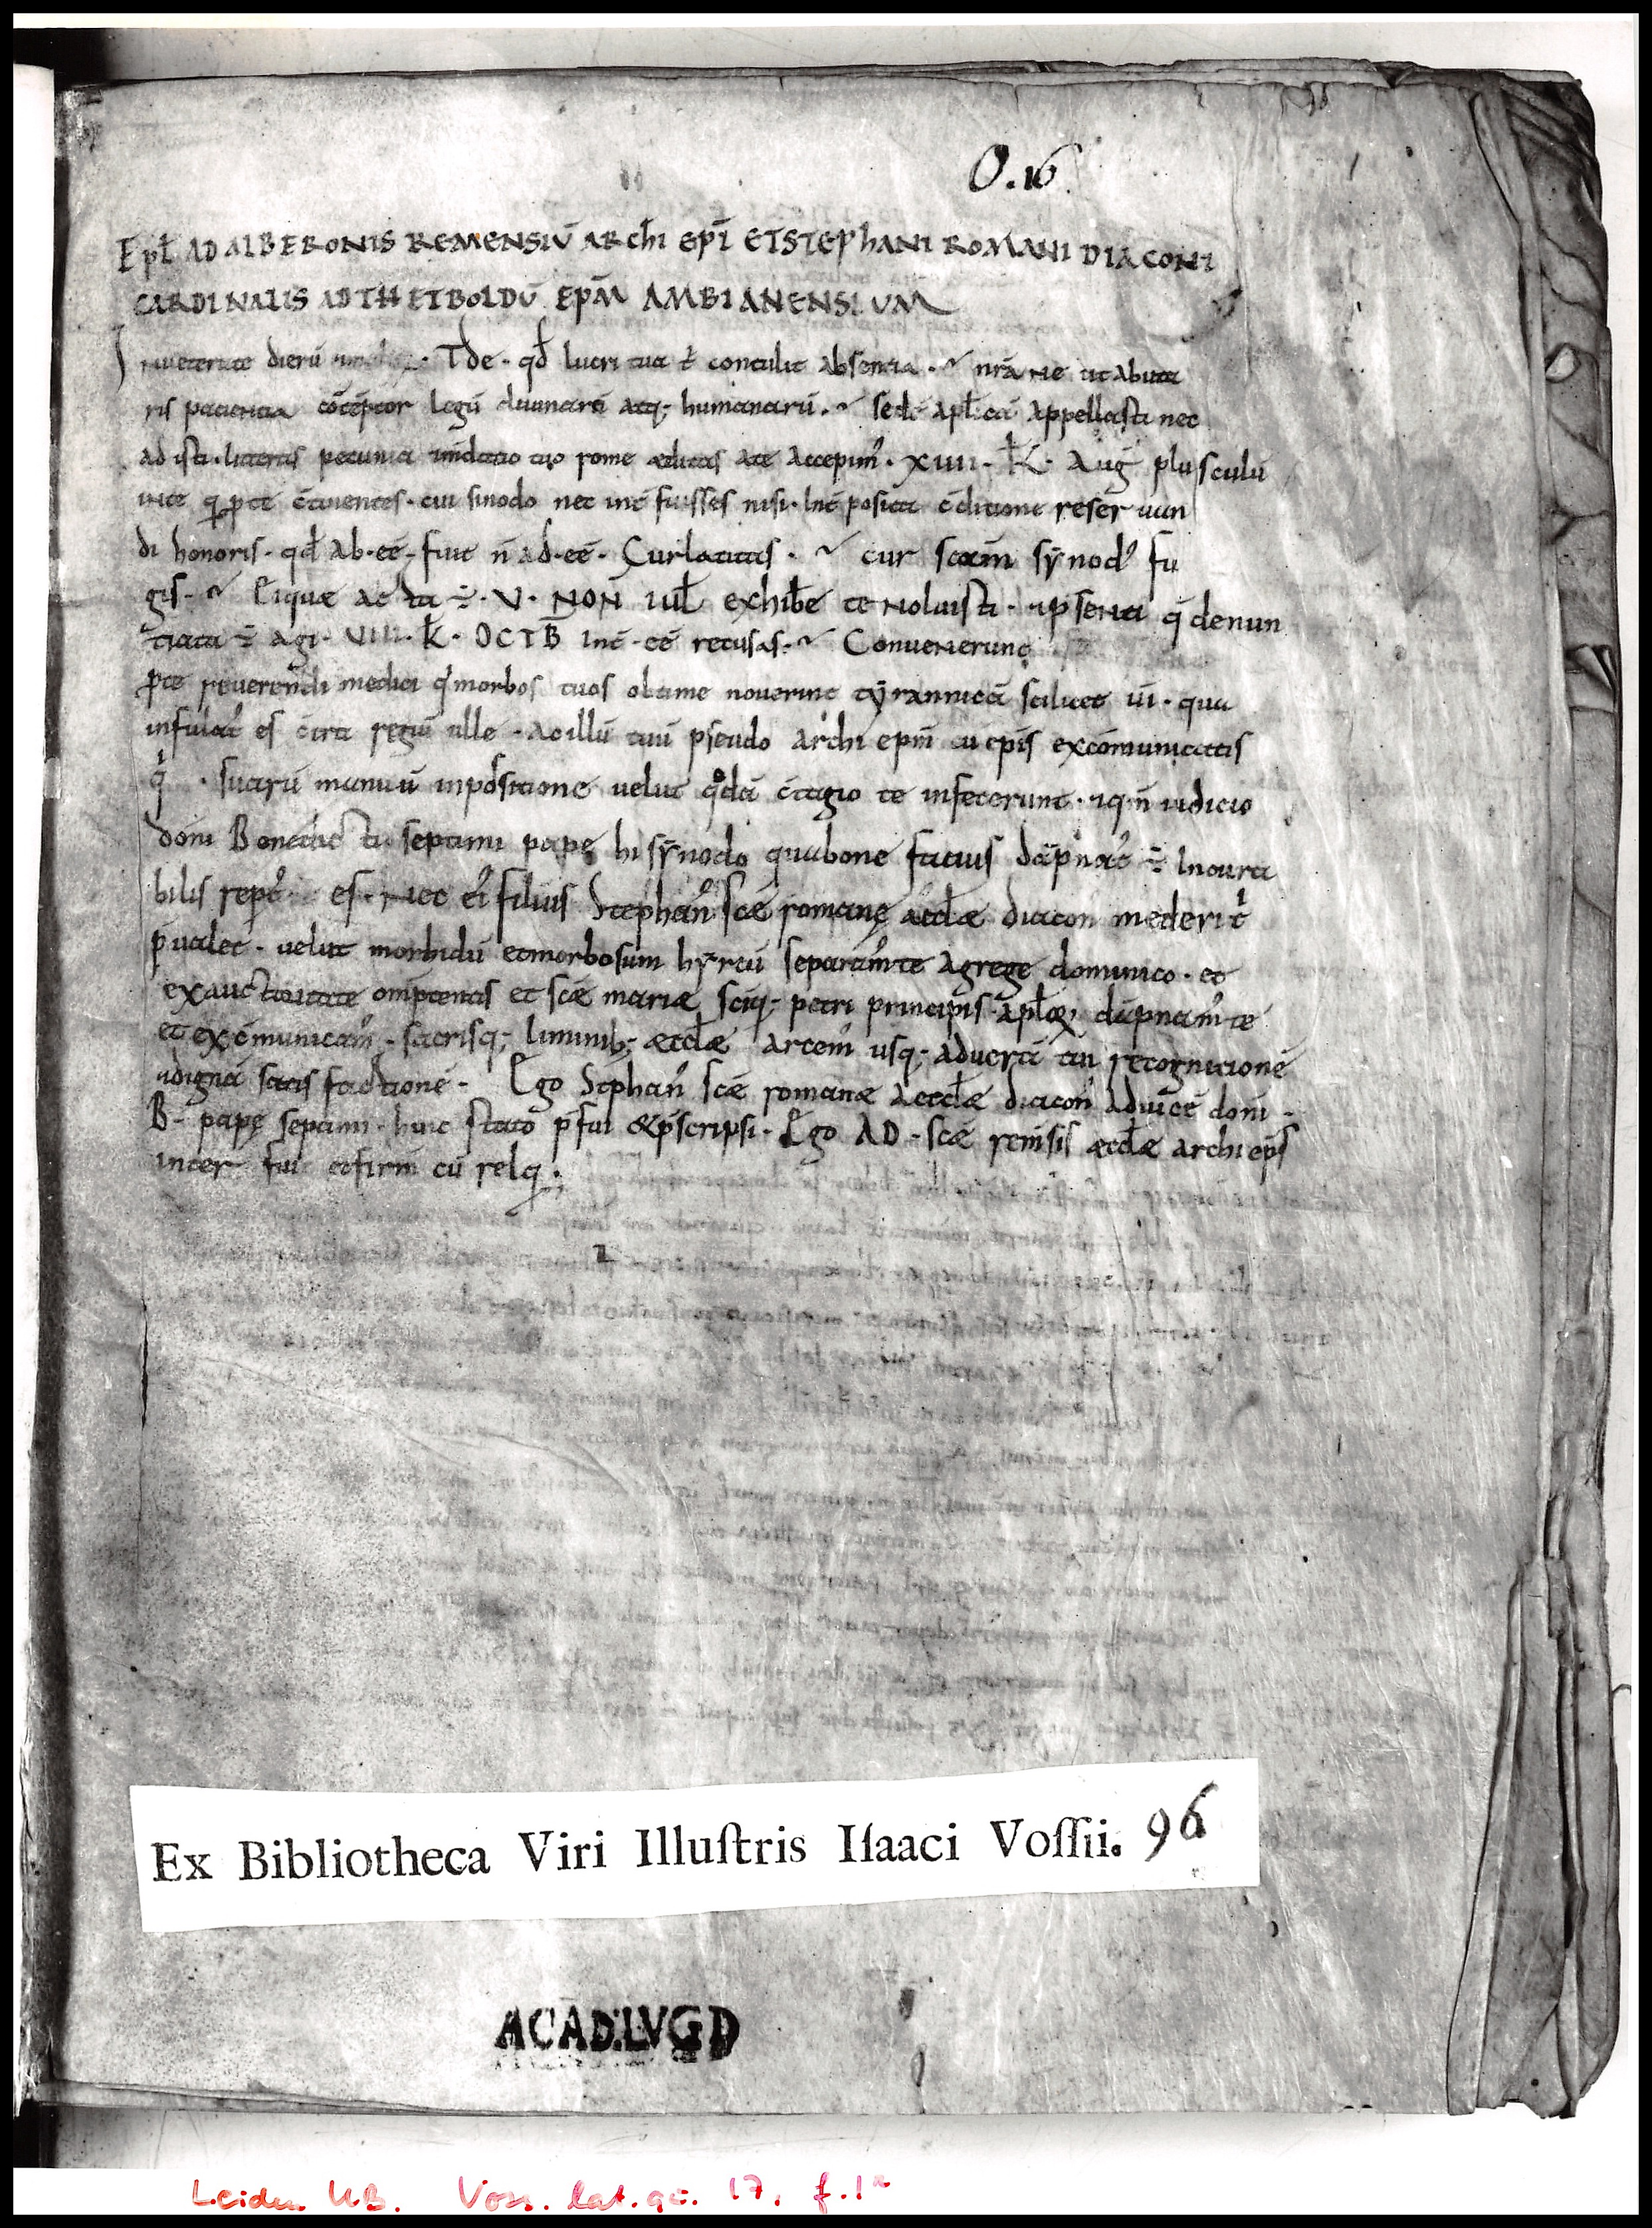 O. 16
Epł ADALBERONIS REMENSIŪ ARChI EPĪ ETSTEPhANI ROMANI DIACONI
CARDINALIS AD THETBOLDŪ EPM̄ AMBIANENSIUM
Inueterate dierū · Tde · qd̄ lucri tua t̄ contulit absentia · nr̄a ne ut abuta
ris pacientia cōtēptor legū diuinarū atq; humanarū · sedē apłicā appellasti nec
ad isti · litteras pecunia romę aeditas a te accepim᾽ · XIIII · K̄ · Aug plusculū
c̄niuentes · cui sinodo nec int̄ fuisses nisi · int̄posita c̄ditione reseruan
di honoris · qd̄ ab · eē · fuit n̄ ad · eē · Cur latitas · cur scām sȳnod᾽ fu
gis · acta ÷ · V · NON iuł exhibe te noluisti · q̄ denun
tiata ÷ agi · VIII · k̄ · OCTB̄ int̄ · eē recusas · Conuenerunt
reuerendi medici q̄ morbos tuos obtime nouerint tȳrannicā scilicet ui · qua
infulat᾽ es c̄tra regiū uelle · ac illū tuū pseudo archiepm̄ cū epis excōmunicatis
q̄ · suarū manuū inpositione uelut q°dā c̄tagio te infecerunt · iudicio
dōni Benedicti septimi papę sȳnodo dāpnat᾽ ÷ Incura
bilis repert᾽ es · Nec ei᾽ filius Stephan᾽ scē romanę aecclae diacon mederi t̄
p̄ualet · uelut morbidū et morbosum hyrcū separam᾽ te a grege dominico · et
ex auctoritate omīptentis et scē mariae sciq; petri principis apłoꝝ dāpnam᾽ te
et exc̄municam᾽ · sacrisq; liminib; aecclae arcem᾽ usq; ad uerā tui recognitionē
satisfactionē · Ego Stephan᾽ scē romanae aecclae diacon᾽ ad uicē dōni
B · papę septimi · huic p̄fui & p̄scripsi · Ego AD · scē rem̄sis aecclae archieps
inter fui cōfirm̄ cū relq ·
Ex Bibliotheca Viri Illuſtris Iſaaci Voſſii. 96
ACAD.LVGD
Leiden UB. Voss. lat. qu. 17, f. 1r